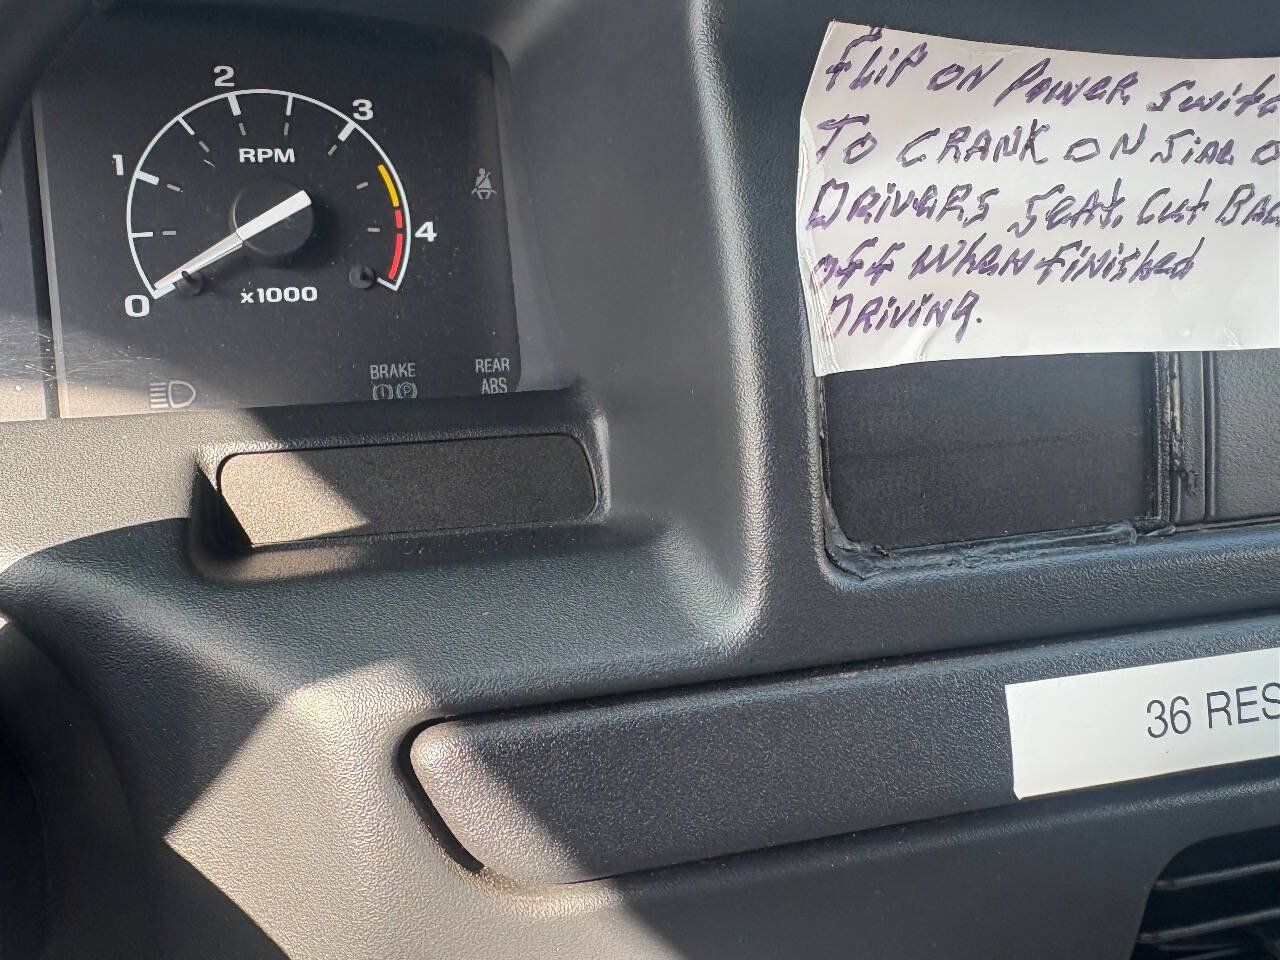 2
3
1
RPM
4
0
x1000
BRAKE
REAR
ABS
FLIP ON POWER SWITC
TO CRANK ON SIDE O
DRIVERS SEAT. CUT BAC
OFF WHEN FINISHED
DRIVING.
36 RES